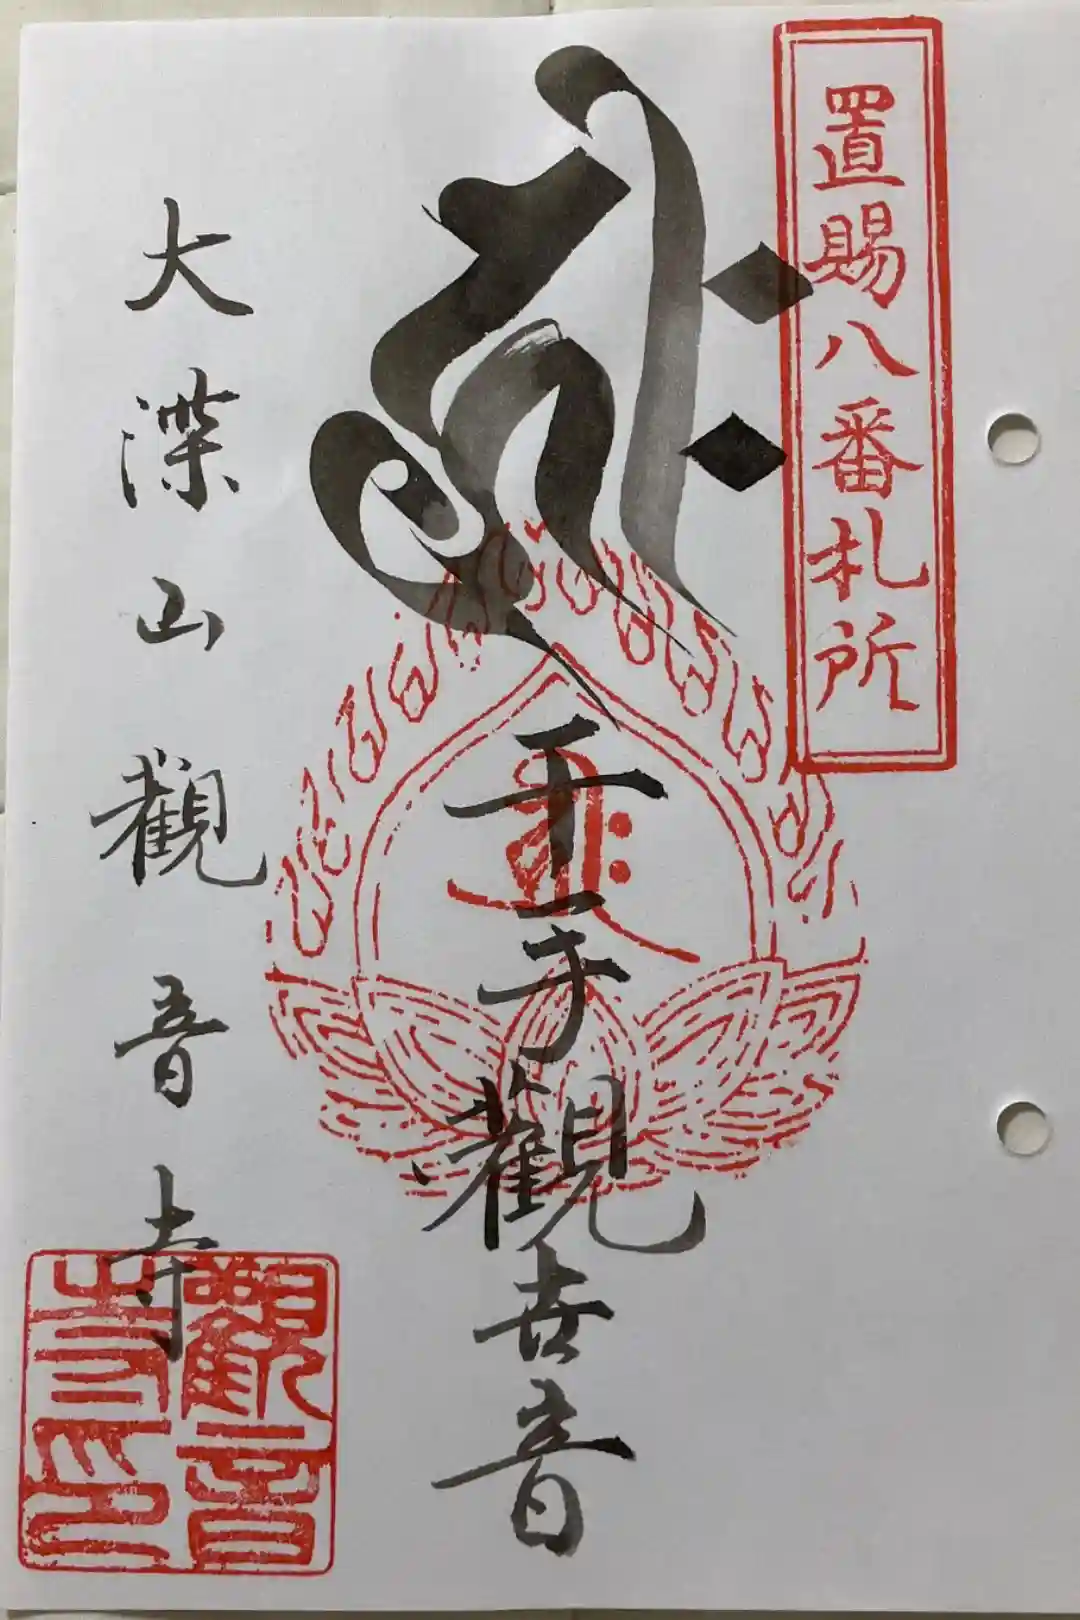 置賜八番札所
ह्रीः
千手觀世音
大深山觀音寺
觀音寺印